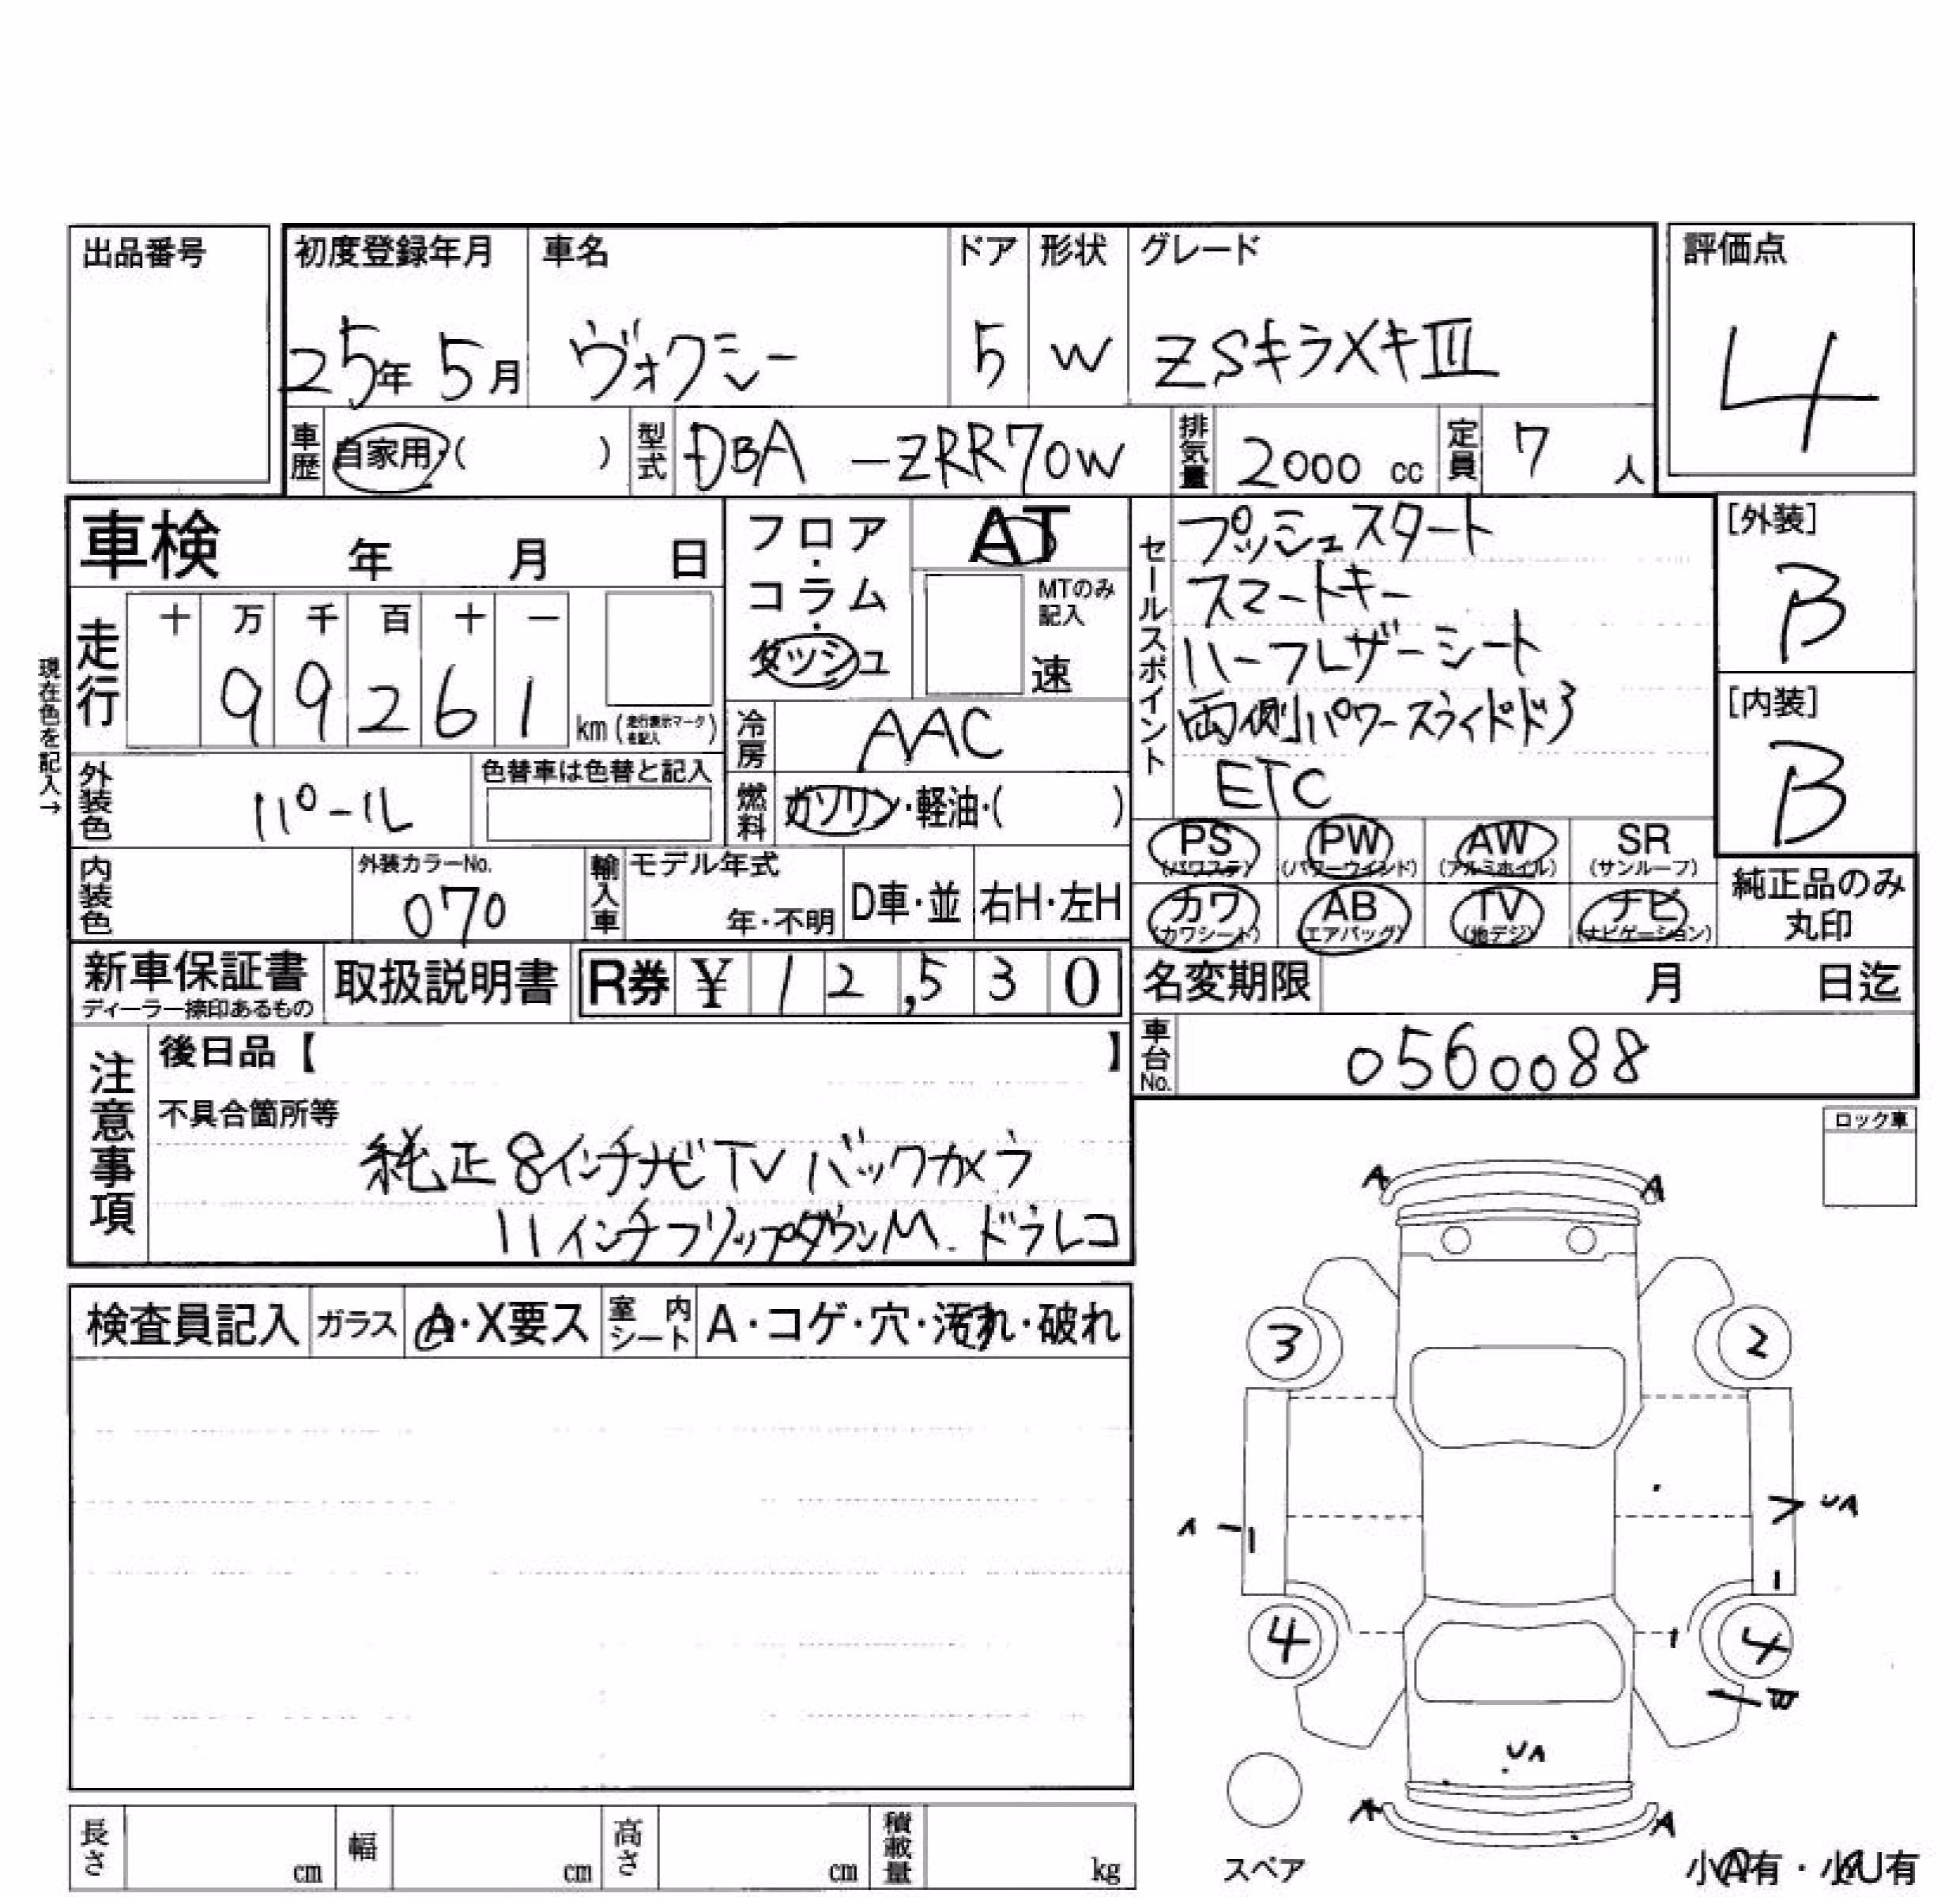 出品番号
初度登録年月 車名 ドア 形状 グレード 評価点
25年 5月 ヴォクシー 5 W ZSキラメキⅢ 4
車歴 自家用・( ) 型式 DBA-ZRR70W 排気量 2000 cc 定員 7 人
車検 年 月 日
フロア・コラム・ダッシュ
AT
MTのみ記入
速
セールスポイント
プッシュスタート
スマートキー
ハーフレザーシート
両側パワースライドドア
ETC
[外装]
B
[内装]
B
現在色を記入→
走行 十 万 千 百 十 一
99261 km (走行表示マークを記入)
冷房 AAC
外装色 パール 色替車は色替と記入
燃料 ガソリン・軽油・( )
PS (パワステ) PW (パワーウインド) AW (アルミホイル) SR (サンルーフ)
カワ (カワシート) AB (エアバッグ) TV (地デジ) ナビ (ナビゲーション)
純正品のみ
丸印
内装色 外装カラーNo. 070 輸入車 モデル年式 年・不明 D車・並 右H・左H
新車保証書 取扱説明書 R券 ¥ 12,530
ディーラー捺印あるもの
名変期限 月 日迄
車台No. 0560088
注意事項
後日品【 】
不具合箇所等
純正8インチナビTV バックカメラ
11インチフリップダウンM. ドラレコ
ロック車
検査員記入 ガラス A・X要ス 室内シート A・コゲ・穴・汚れ・破れ
A A
3 2
A UA
4 4
UA
A A
スペア
小A有・小U有
長さ cm 幅 cm 高さ cm 積載量 kg